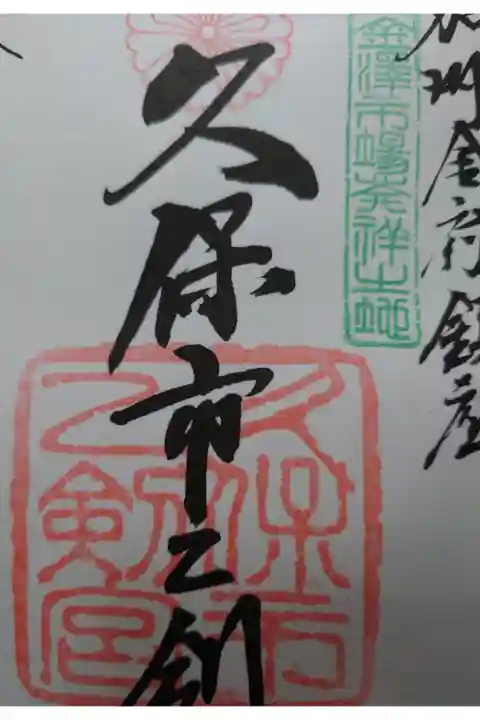 加州金府鎮座
金澤市場発祥之地
久保市乙剣
久保市
乙剣宮